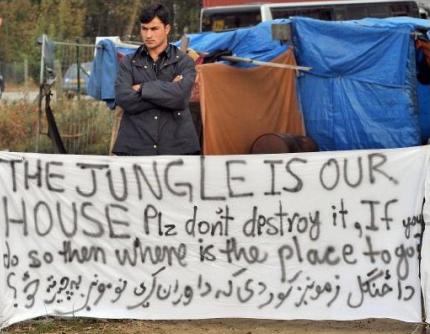 THE JUNGLE IS OUR
HOUSE Plz don't destroy it, If you
do so then where is the place to go?
دا ځنګل زمونږ کور دی که دا وران کړی نو مونږ به چیرته ځو؟